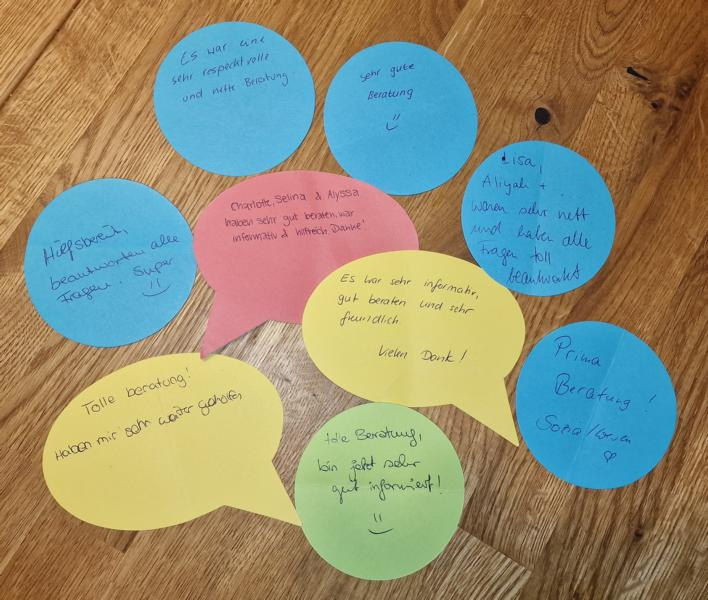 Es war eine
sehr respektvolle
und nette Beratung.
sehr gute
Beratung
Lisa,
Aliyah + ...
waren sehr nett
und haben alle
Fragen toll
beantwortet
Charlotte, Selina & Alyssa
haben sehr gut beraten, war
informativ & hilfreich. Danke!
Hilfsbereit,
beantworten alle
Fragen. Super
Es war sehr informativ,
gut beraten und sehr
freundlich.
Vielen Dank!
Prima
Beratung!
Tolle beratung!
Haben mir sehr weiter geholfen
tolle Beratung,
bin jetzt sehr
gut informiert!